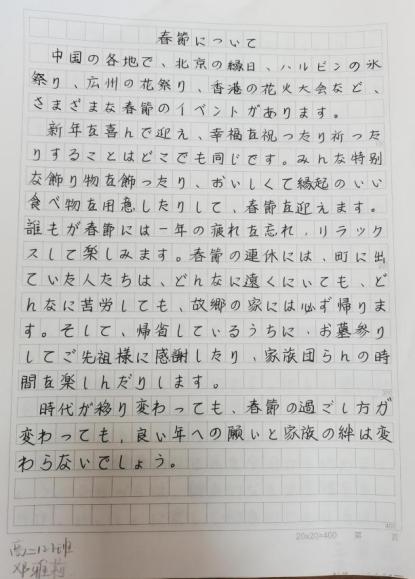 春節について
中国の各地で、北京の縁日、ハルビンの氷
祭り、広州の花祭り、香港の花火大会など、
さまざまな春節のイベントがあります。
新年を喜んで迎え、幸福を祝ったり祈った
りすることはどこでも同じです。みんな特別
な飾り物を飾ったり、おいしくて縁起のいい
食べ物を用意したりして、春節を迎えます。
誰もが春節には一年の疲れを忘れ、リラック
スして楽しみます。春節の連休には、町に出
ていた人たちは、どんなに遠くにいても、ど
んなに苦労しても、故郷の家には必ず帰りま
す。そして、帰省しているうちに、お墓参り
してご先祖様に感謝したり、家族団らんの時
間を楽しんだりします。
時代が移り変わっても、春節の過ごし方が
変わっても、良い年への願いと家族の絆は変
わらないでしょう。
400
20x20=400 第 頁
高二12班
邓雅莉